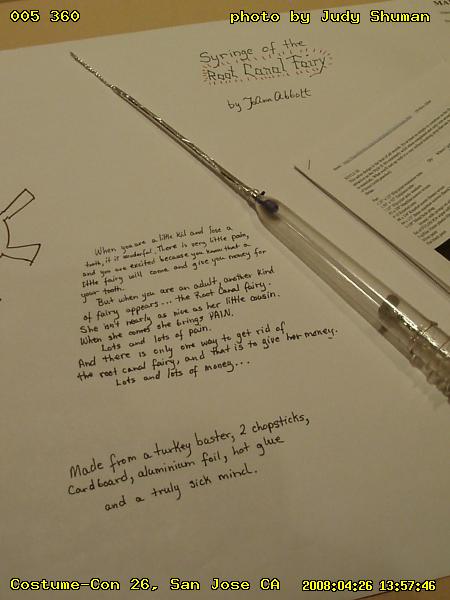 005 360
photo by Judy Shuman
Syringe of the
Root Canal Fairy
by JoAnn Abbott
When you are a little kid and lose a
tooth, it is wonderful. There is very little pain,
and you are excited because you know that a
little fairy will come and give you money for
your tooth.
But when you are an adult, another kind
of fairy appears... the Root Canal fairy.
She isn't nearly as nice as her little cousin.
When she comes she brings PAIN.
Lots and lots of pain.
And there is only one way to get rid of
the root canal fairy, and that is to give her money.
Lots and lots of money...
Made from a turkey baster, 2 chopsticks,
Cardboard, aluminium foil, hot glue
and a truly sick mind.
Costume-Con 26, San Jose CA
2008:04:26 13:57:46